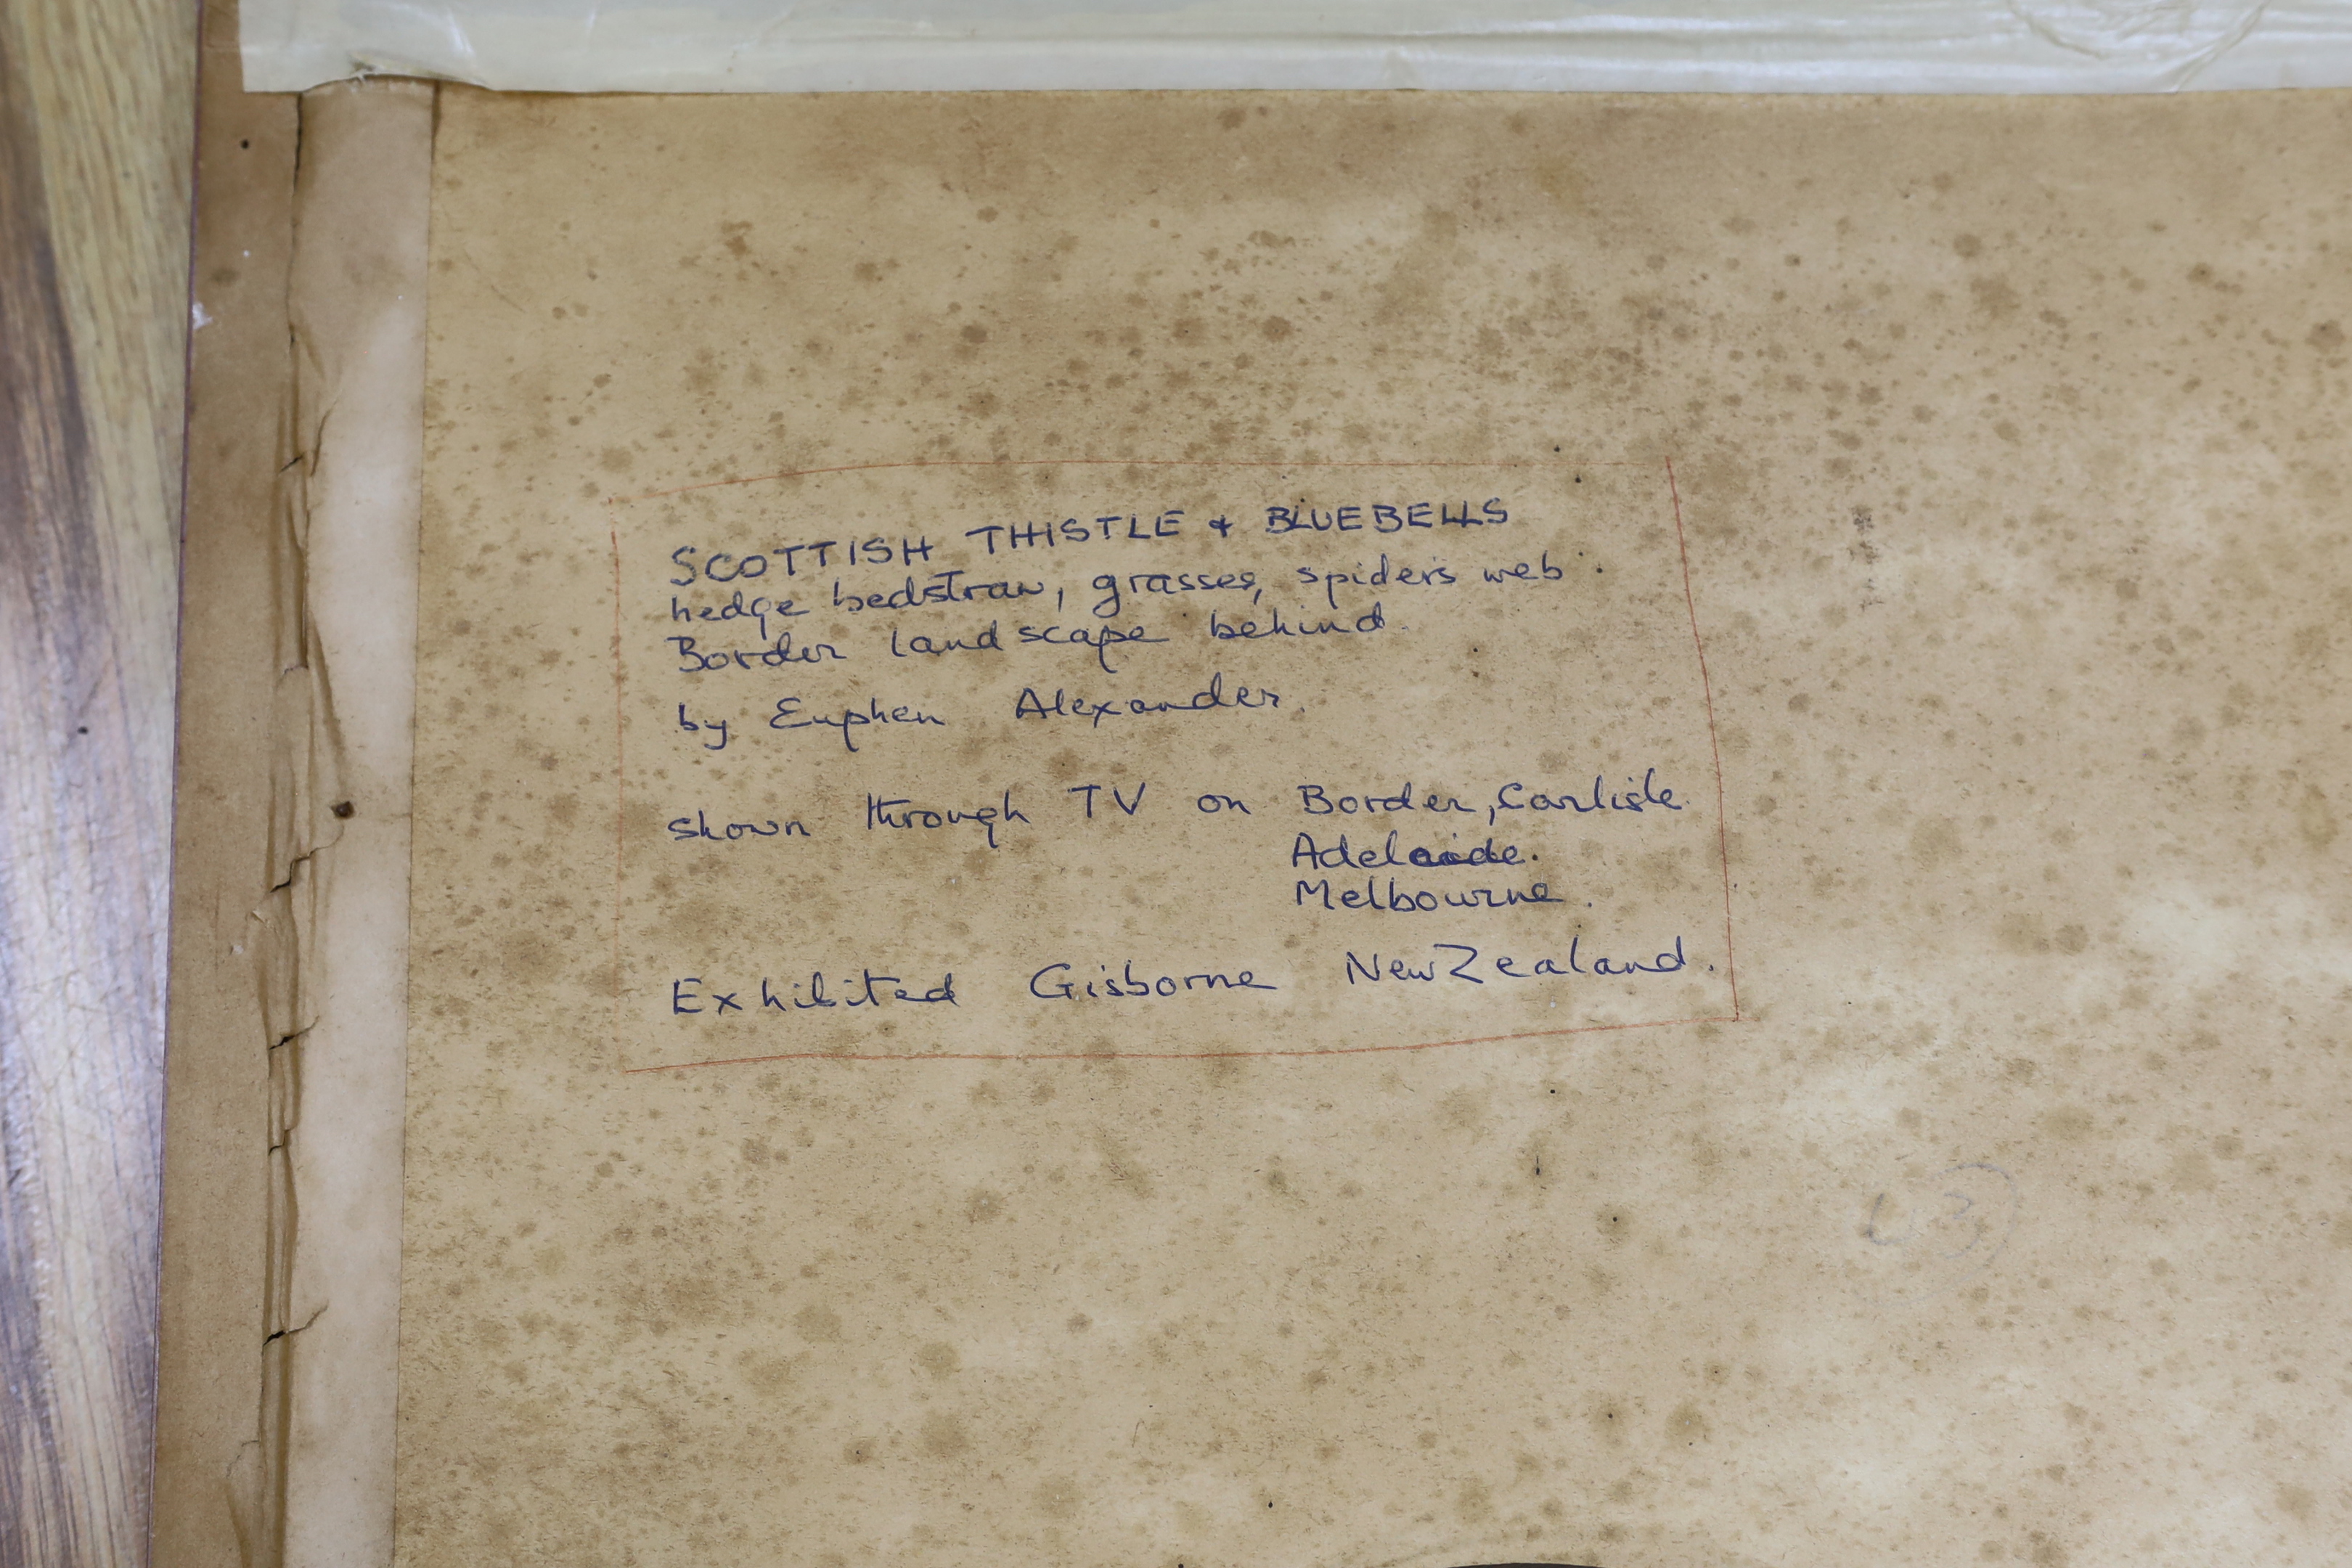 SCOTTISH THISTLE & BLUEBELLS
hedge bedstraw, grasses, spiders web.
Border landscape behind.
by Euphen Alexander.
shown through TV on Border, Carlisle.
Adelaide.
Melbourne.
Exhibited Gisborne New Zealand.